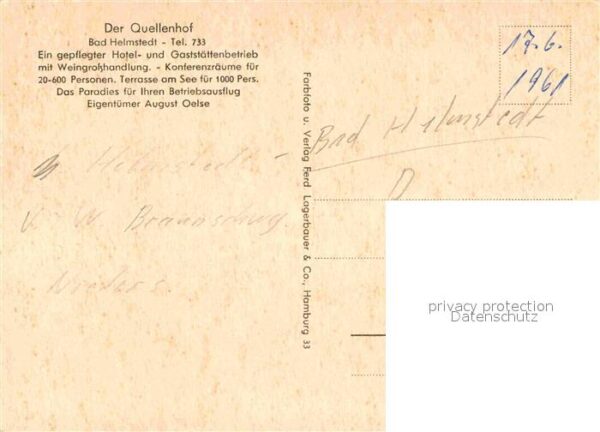 Der Quellenhof
Bad Helmstedt - Tel. 733
Ein gepflegter Hotel- und Gaststättenbetrieb
mit Weingroßhandlung. - Konferenzräume für
20-600 Personen. Terrasse am See für 1000 Pers.
Das Paradies für Ihren Betriebsausflug
Eigentümer August Oelse
17.6.
1961
Farbfoto u. Verlag Ferd. Lagerbauer & Co., Hamburg 33
Bad Helmstedt
D
Helmstedt -
W. Braunschwg
Nieders.
privacy protection
Datenschutz